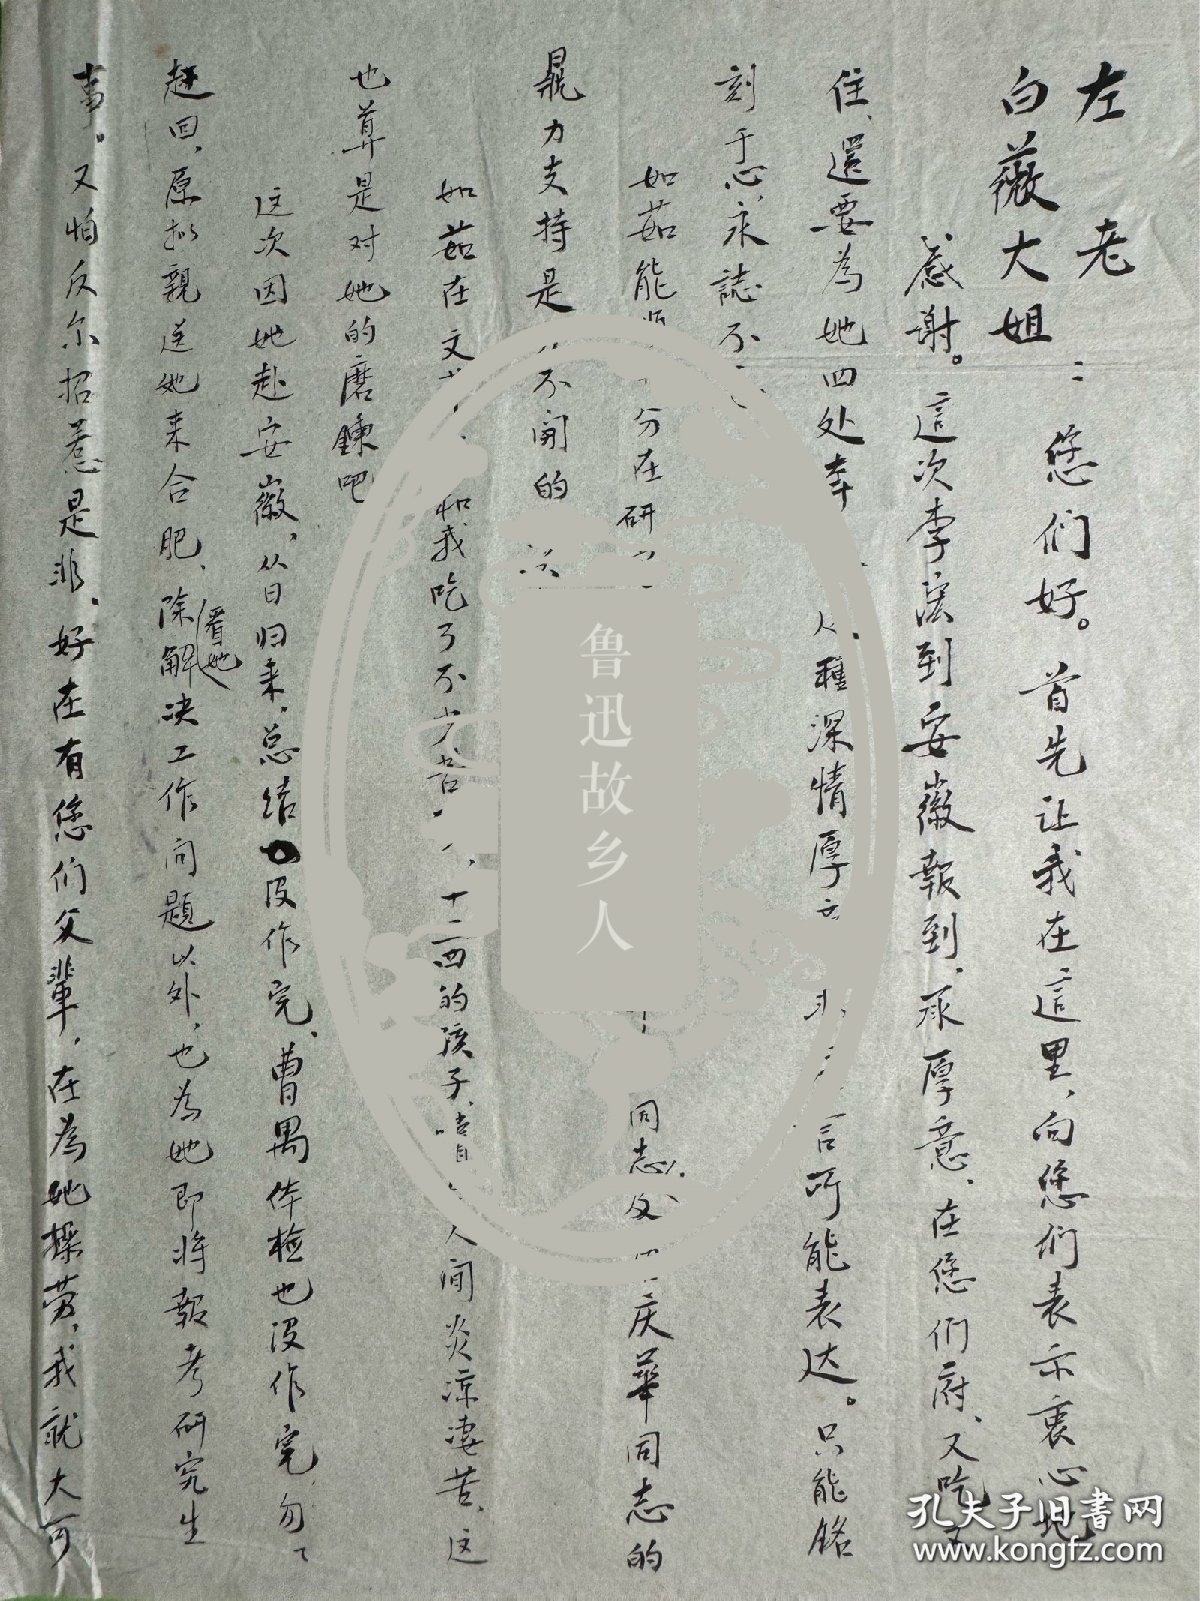 左老
白薇大姐：您们好。首先让我在這里、向您们表示衷心地
感谢。這次李浤到安徽報到、承厚意、在您们府、又吃又
住、還要為她四处奔 種深情厚 言所能表达。只能銘
刻于心、永誌不
如茹能 分在研 同志及 庆華同志的
鼎力支持是 不開的
如茹在文 和我吃了不少苦 十二四的孩子、嚐 人间炎凉凄苦、这
也算是对她的磨鍊吧
这次因她赴安徽、从日归来、总结没作完、曹禺体检也没作完、匆匆
赶回、原拟親送她来合肥、除看她解决工作问題以外、也為她即将報考研究生
事。又怕反尔招惹是非、好在有您们父輩、在為她操劳、我就大可
鲁迅故乡人
孔夫子旧書网
www.kongfz.com